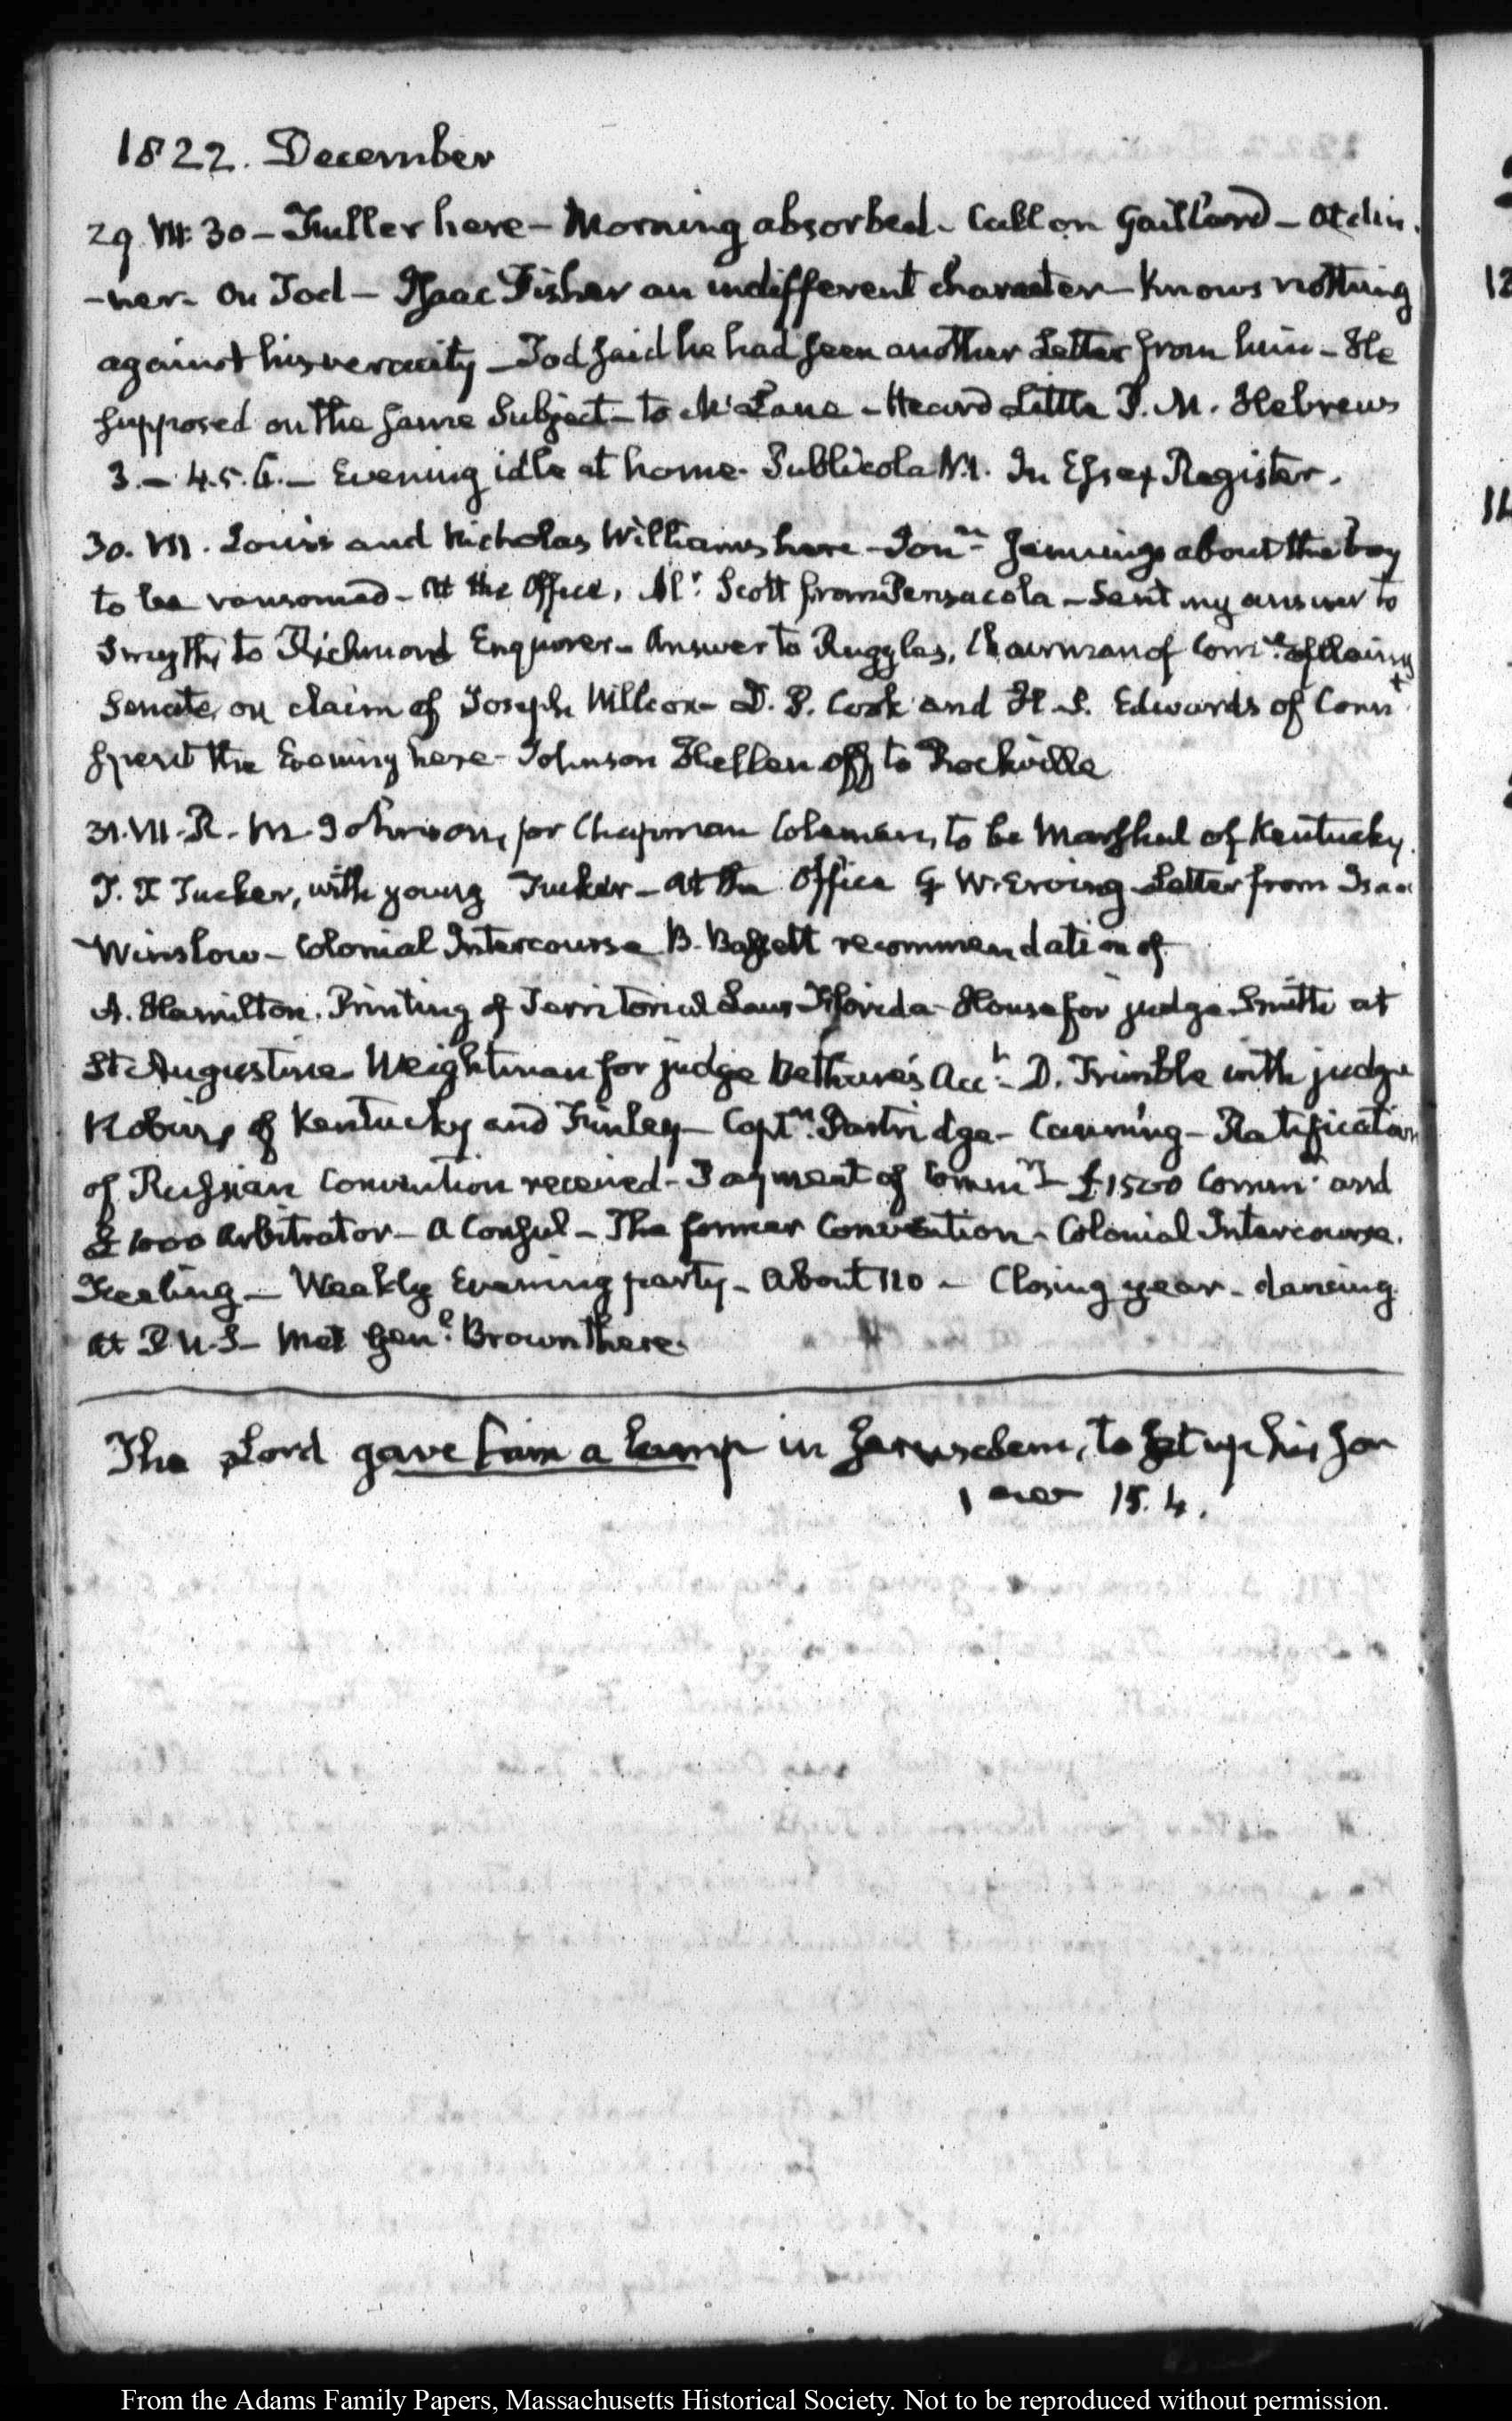 1822. December
29. VII: 30 – Fuller here – Morning absorbed – Call on Gaillard – At din
-ner – On Tod – Isaac Fisher an indifferent character – Knows nothing
against his veracity – Tod said he had seen another Letter from him – He
supposed on the same Subject – to McLane – Heard Little P. M. Hebrews
3. – 4. 5. 6. – Evening idle at home. Publicola N. 1. In Essex Register.
30. VII. Louis and Nicholas Williams here – Jonn. Jennings about the boy
to be ransomed – At the Office, Mr. Scott from Pensacola – Sent my answer to
Smyth, to Richmond Enquirer – Answer to Ruggles, Chairman of Comee. of Claims
Senate, on claim of Joseph Willcox – D. P. Cook and H. S. Edwards of Connt.
spent the Evening here – Johnson Hellen off to Rockville
31. VII. R. M. Johnson, for Chapman Coleman, to be Marshal of Kentucky.
T. T. Tucker, with young Tucker – At the Office G. W. Erving – Letter from Isaac
Winslow – Colonial Intercourse B. Bassett recommendation of
A. Hamilton. Printing of Territorial Laws Florida – House for judge Smith at
St. Augustine – Weightman for judge Bethune's Acct. – D. Trimble with judge
of Kentucky and Finley – Captn. Partridge – Canning – Ratification
of Russian Convention received – Payment of Commn. – £1500 Commn. and
£1000 Arbitrator – A Consul – The former Convention – Colonial Intercourse.
Keeling – Weekly Evening party – About 120 – Closing year – dancing
At P. U. S – Met Genl. Brown there.
The Lord gave him a lamp in Jerusalem, to set up his son
1 15. 4.
From the Adams Family Papers, Massachusetts Historical Society. Not to be reproduced without permission.